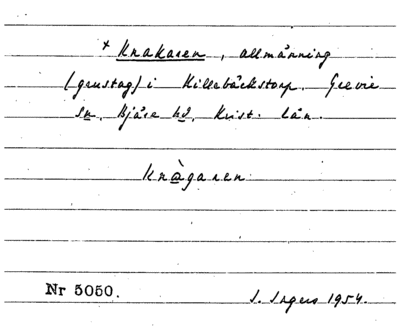 + Knakaren, allmänning
(grustag) i Killebäckstorp. Grevie
sn. Bjäre hd. Krist. län.
knàgaren
Nr 5050.
S. Ingers 1954.